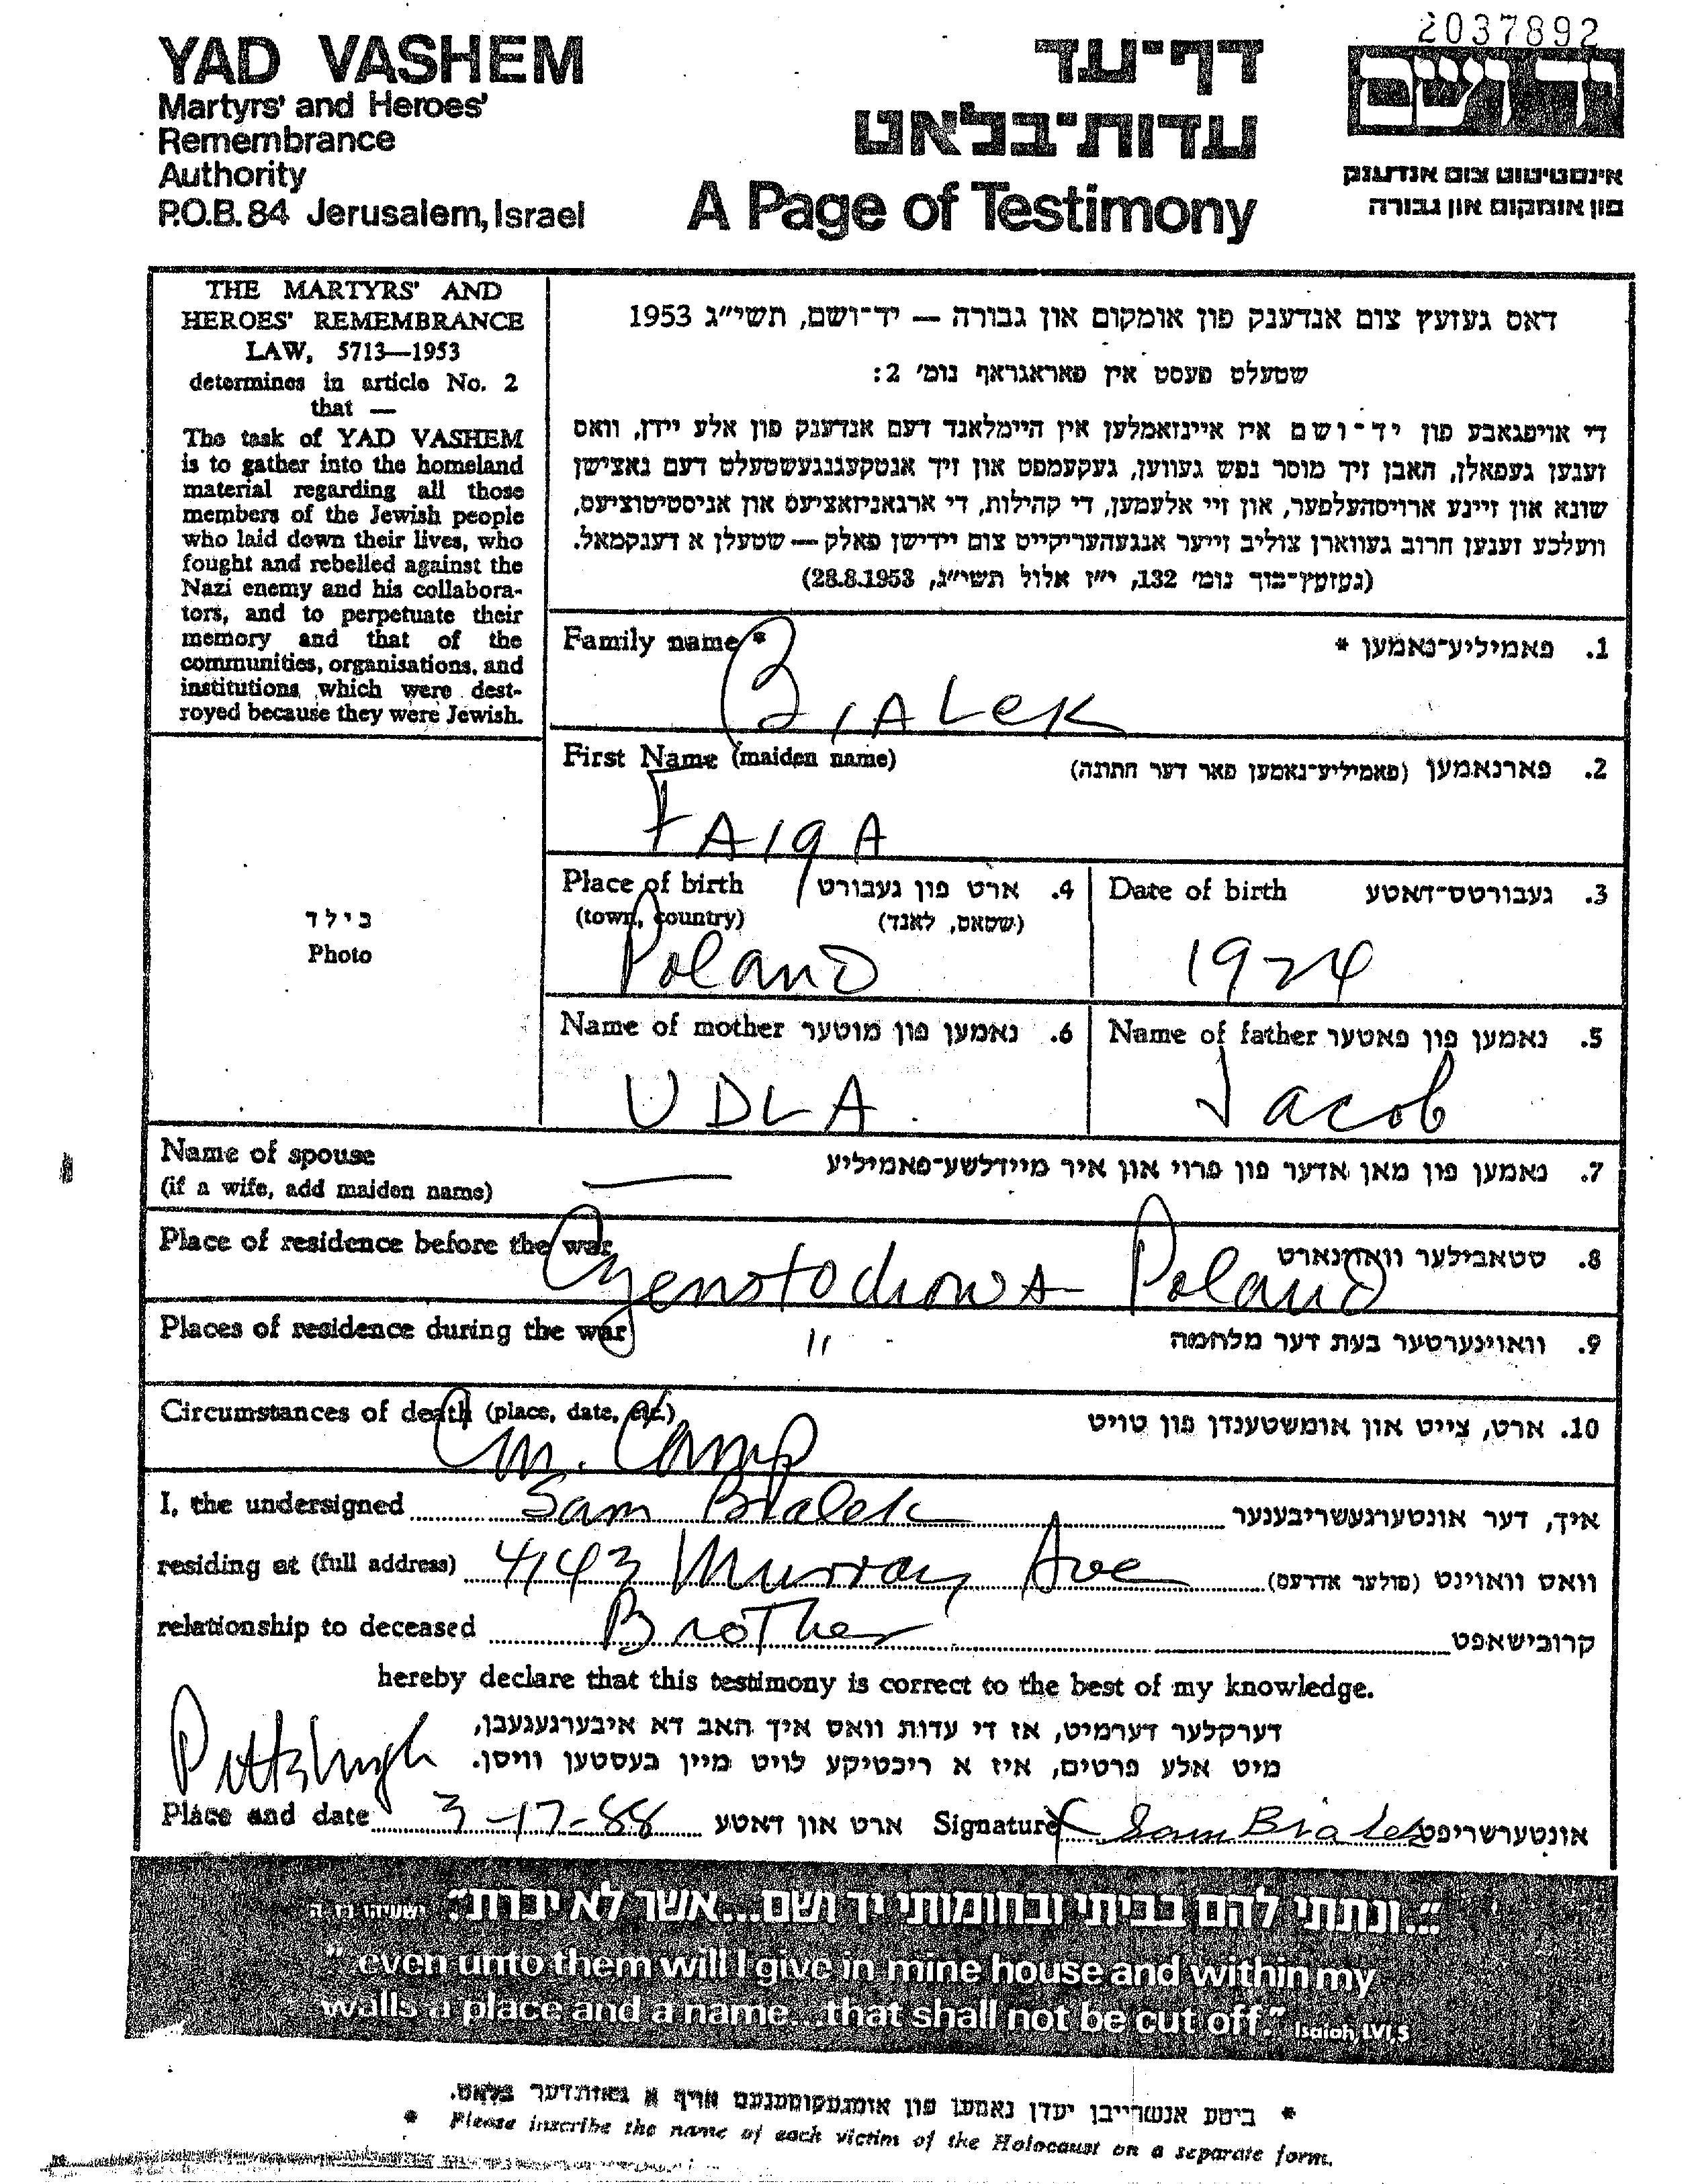 2037892
YAD VASHEM
Martyrs' and Heroes'
Remembrance
Authority
P.O.B. 84 Jerusalem, Israel
דף־עד
עדות־בלאט
A Page of Testimony
יד ושם
אינסטיטוט צום אנדענק
פון אומקום און גבורה
THE MARTYRS' AND
HEROES' REMEMBRANCE
LAW, 5713—1953
determines in article No. 2
that —
The task of YAD VASHEM
is to gather into the homeland
material regarding all those
members of the Jewish people
who laid down their lives, who
fought and rebelled against the
Nazi enemy and his collabora-
tors, and to perpetuate their
memory and that of the
communities, organisations, and
institutions which were dest-
royed because they were Jewish.
דאס געזעץ צום אנדענק פון אומקום און גבורה — יד־ושם, תשי״ג 1953
שטעלט פעסט אין פאראגראף נומ׳ 2:
די אויפגאבע פון יד־ושם איז איינזאמלען אין היימלאנד דעם אנדענק פון אלע יידן, וואס
זענען געפאלן, האבן זיך מוסר נפש געווען, געקעמפט און זיך אנטקעגנגעשטעלט דעם נאצישן
שונא און זיינע ארויסהעלפער, און זיי אלעמען, די קהילות, די ארגאניזאציעס און אינסטיטוציעס,
וועלכע זענען חרוב געווארן צוליב זייער אנגעהעריקייט צום יידישן פאלק — שטעלן א דענקמאל.
(געזעץ־בוך נומ׳ 132, י״ז אלול תשי״ג, 28.8.1953)
Family name * 1. פאמיליע־נאמען *
BIALEK
First Name (maiden name) 2. פארנאמען (פאמיליע־נאמען פאר דער חתונה)
FAIGA
Place of birth 4. ארט פון געבורט
(town, country) (שטאט, לאנד)
Poland
Date of birth 3. געבורטס־דאטע
1924
Name of mother 6. נאמען פון מוטער
UDLA
Name of father 5. נאמען פון פאטער
Jacob
בילד
Photo
Name of spouse 7. נאמען פון מאן אדער פון פרוי און איר מיידלשע־פאמיליע
(if a wife, add maiden name) —
Place of residence before the war 8. סטאבילער וואוינארט
Czenstochowa Poland
Places of residence during the war 9. וואוינערטער בעת דער מלחמה
"
Circumstances of death (place, date, etc.) 10. ארט, צייט און אומשטענדן פון טויט
Camp
I, the undersigned Sam Bialek איך, דער אונטערגעשריבענער
residing at (full address) 4143 Murray Ave וואס וואוינט (פולער אדרעס)
relationship to deceased Brother קרובישאפט
hereby declare that this testimony is correct to the best of my knowledge.
דערקלער דערמיט, אז די עדות וואס איך האב דא איבערגעגעבן,
מיט אלע פרטים, איז א ריכטיקע לויט מיין בעסטען וויסן.
Pittsburgh
Place and date 3-17-88 ארט און דאטע Signature X Sam Bialek אונטערשריפט
"...ונתתי להם בביתי ובחומותי יד ושם...אשר לא יכרת" ישעיהו נו, ה
"even unto them will I give in mine house and within my
walls a place and a name...that shall not be cut off." Isaiah, LVI,5
* ביטע אנשרייבן יעדן נאמען פון אומגעקומענעם אויף א באזונדער בלאט.
* Please inscribe the name of each victim of the Holocaust on a separate form.